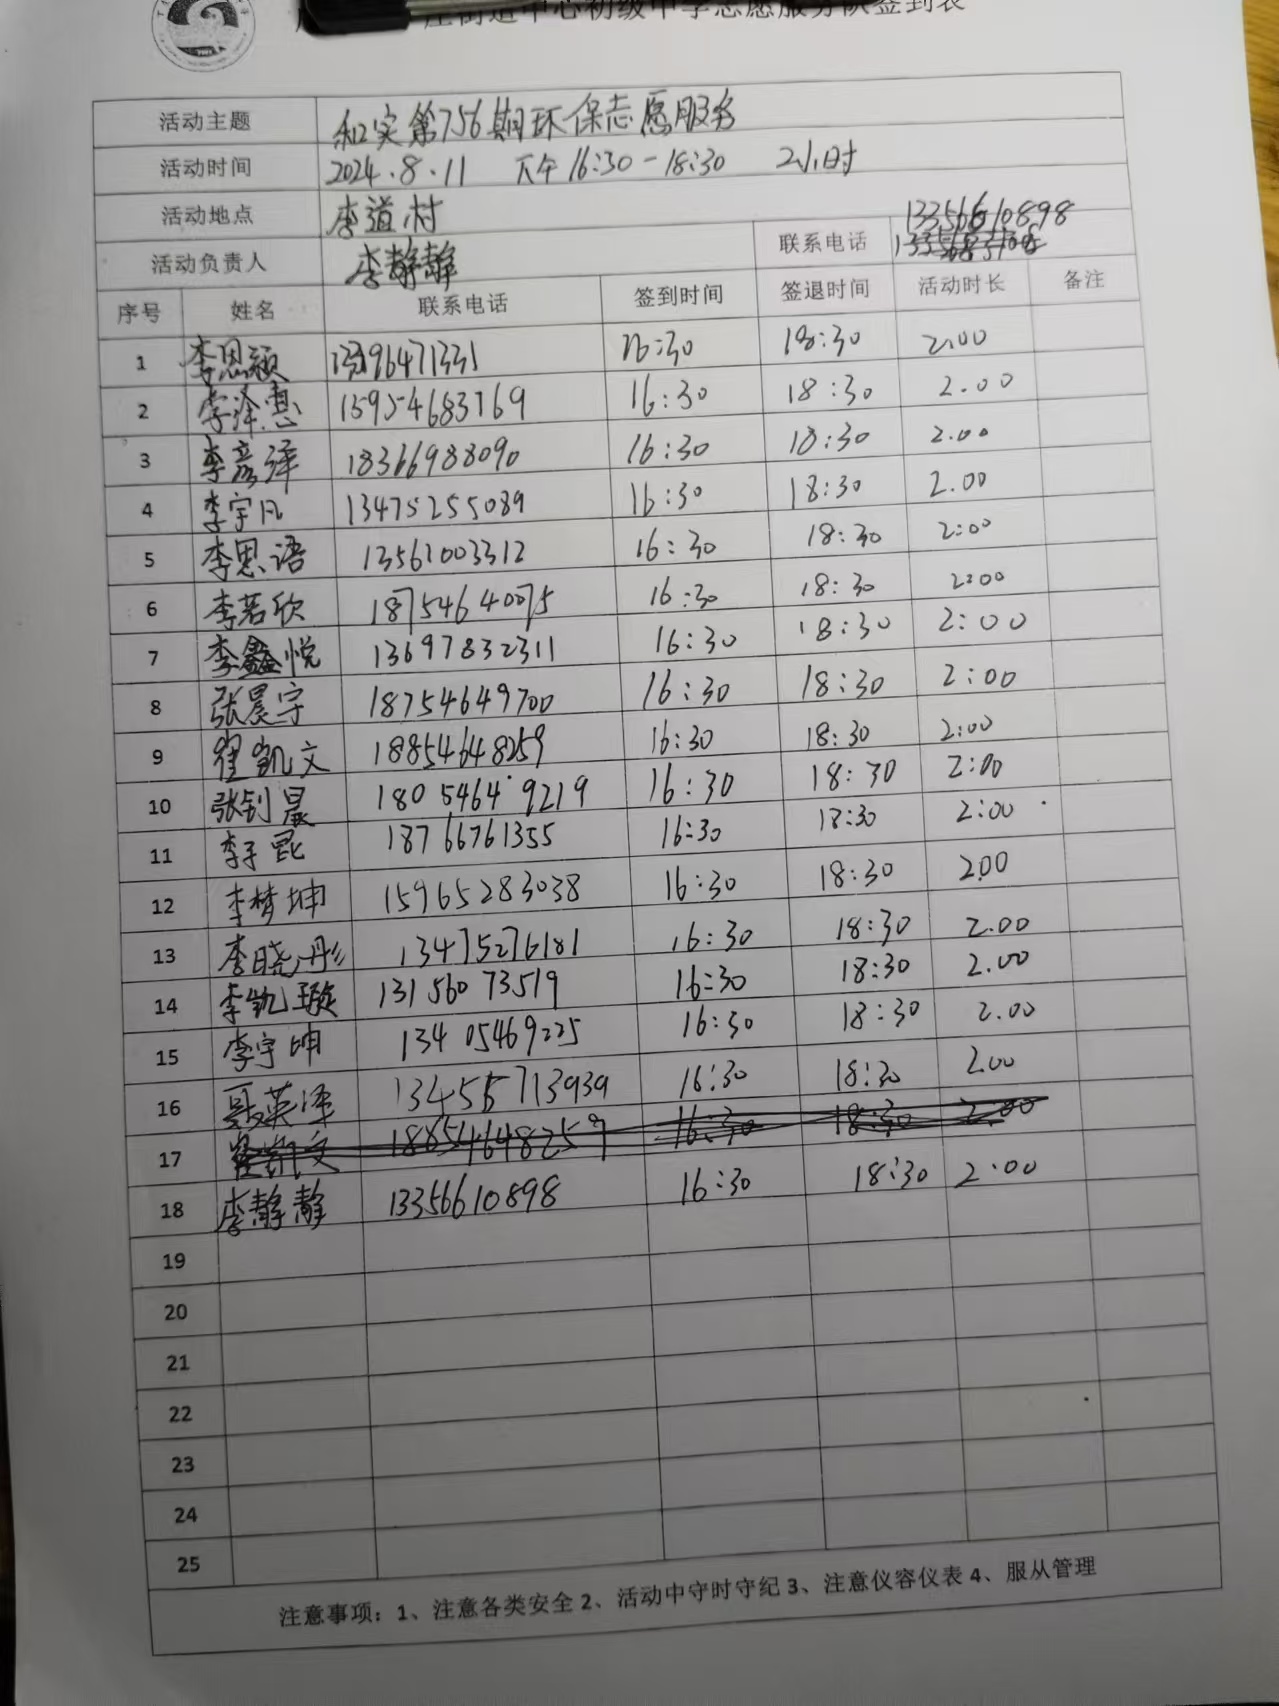 庄街道中心初级中学志愿服务队签到表
活动主题 和实第756期环保志愿服务
活动时间 2024.8.11 下午16:30-18:30 2小时
活动地点 李道村
活动负责人 李静静 联系电话 13356610898
序号 姓名 联系电话 签到时间 签退时间 活动时长 备注
1 李思颖 16:30 18:30 2.00
2 李泽惠 15954683769 16:30 18:30 2.00
3 李彦泽 18366988090 16:30 18:30 2.00
4 李宇凡 13475255089 16:30 18:30 2.00
5 李思语 13561003312 16:30 18:30 2:00
6 李若欣 18754640075 16:30 18:30 2:00
7 李鑫悦 13697832311 16:30 18:30 2:00
8 张晨宇 18754649700 16:30 18:30 2:00
9 翟凯文 18854648259 16:30 18:30 2:00
10 张钊晨 18054649219 16:30 18:30 2:00
11 李子昆 18766761355 16:30 18:30 2:00
12 李梦坤 15965283038 16:30 18:30 2.00
13 李晓彤 13475276181 16:30 18:30 2.00
14 李凯璇 13156073519 16:30 18:30 2.00
15 李宇坤 13405469225 16:30 18:30 2.00
16 聂英泽 13455713939 16:30 18:30 2.00
17 翟凯文 18854648259 16:30 18:30 2.00
18 李静静 13356610898 16:30 18:30 2:00
19
20
21
22
23
24
25
注意事项：1、注意各类安全 2、活动中守时守纪 3、注意仪容仪表 4、服从管理